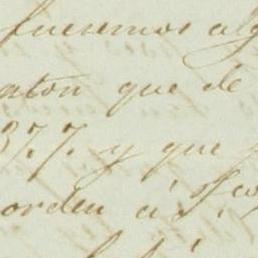 fuesemos alg
aton que de
877. y que
orden á S.